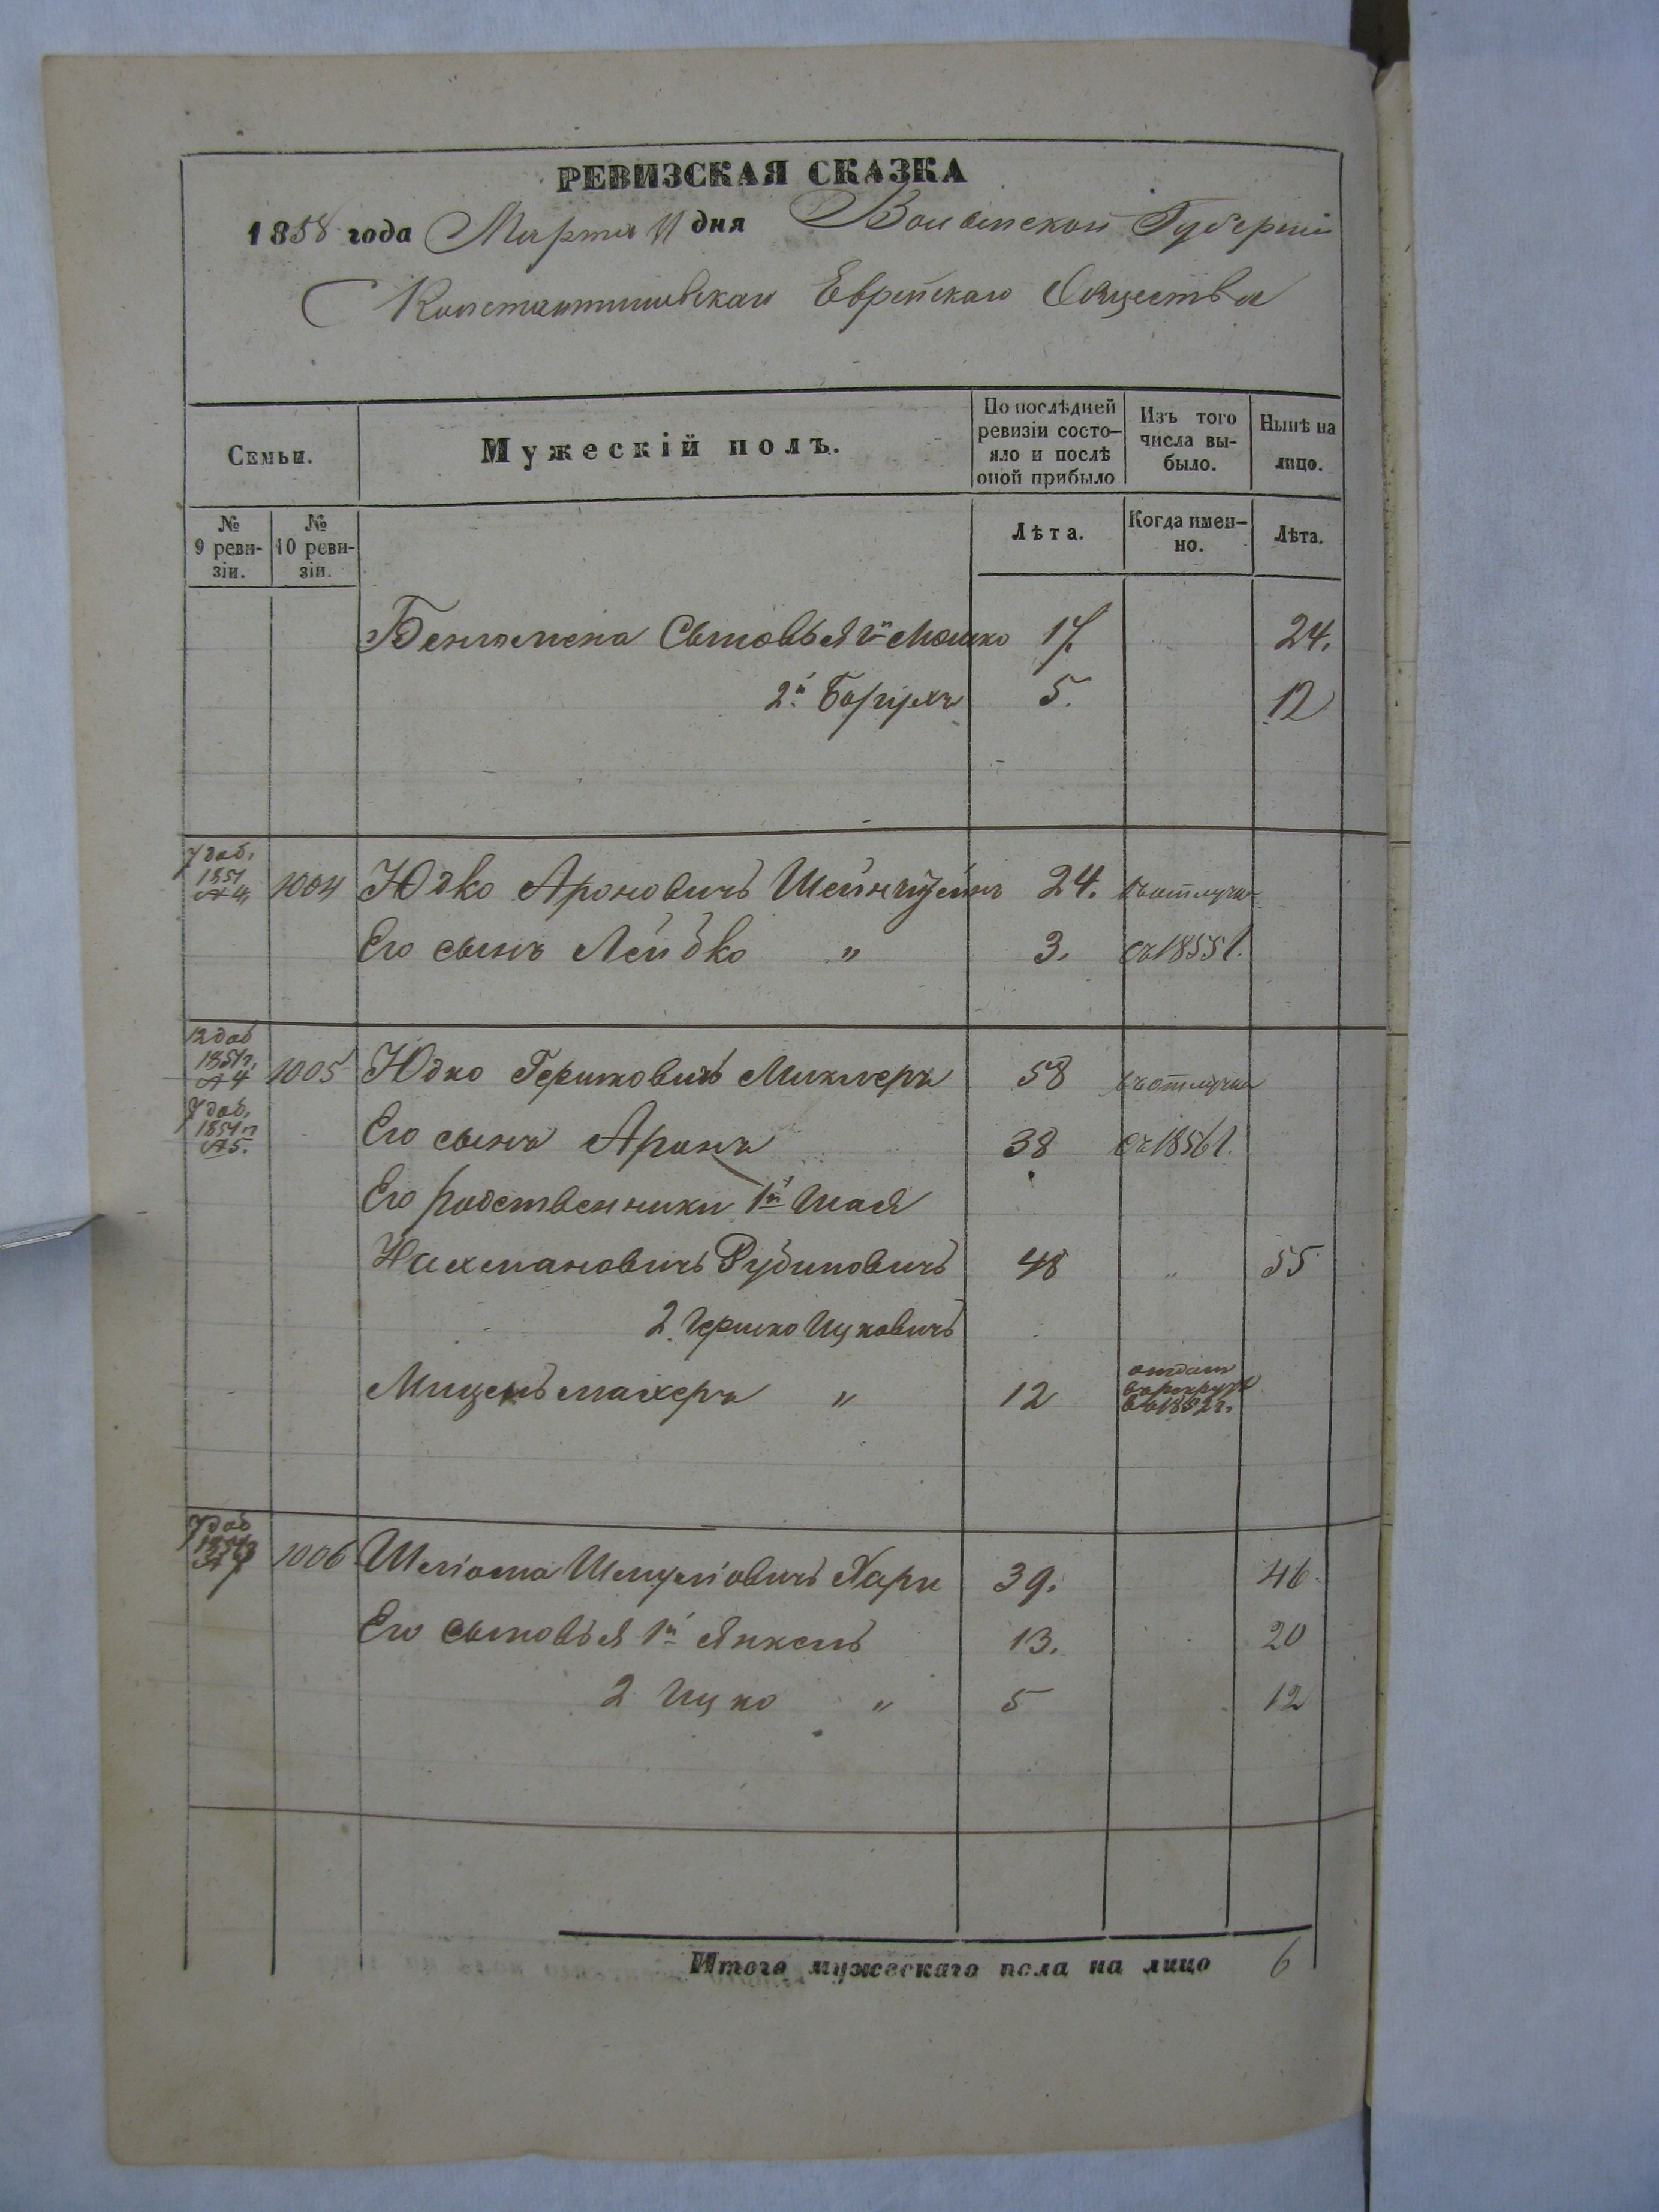 РЕВИЗСКАЯ СКАЗКА
1858 года Марта 11 дня Волынской Губерніи
Константиновскаго Еврейскаго Общества
Семьи.
Мужескій полъ.
По послѣдней ревизіи состо-яло и послѣ оной прибыло
Изъ того числа вы-было.
Нынѣ на лицо.
№ 9 реви-зіи.
№ 10 реви-зіи.
Лѣта.
Когда имен-но.
Лѣта.
Беньомена Сыновья 1й Мошко 17. 24.
2й Борухъ 5. 12
7 доб. 1851 № 4, 1004 Юдко Ароновичъ 24. въ отлучке
Его сынъ Лейбко " 3. съ 1855 г.
12 доб 1851 г. № 4 1005 Юдко Гершковичъ 58 въ отлучке
7 доб. 1851 г № 5. Его сынъ Аронъ 38 съ 1856 г.
Его родственники 1й Шая
Нахмановичъ Рубиновичъ 48 " 55
2. Гершко Ицковичъ
Миценьмахеръ " 12 отдан в рекруты въ 1852 г.
7 доб 1006 Шліома Шмуліовичъ 39. 46.
Его сыновья 1й Янкель 13. 20
2 Ицко " 5 12
Итого мужескаго пола на лицо 6